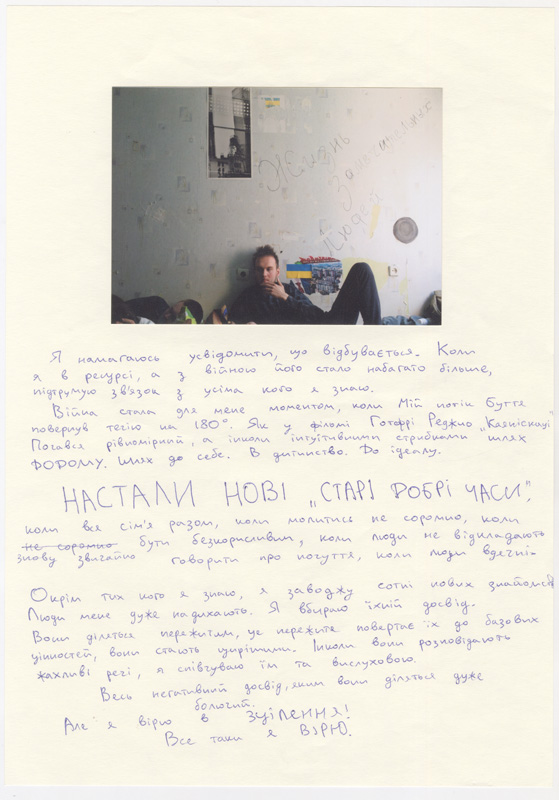 Жизнь
Замечательных
Людей
Я намагаюсь усвідомити, що відбувається. Коли
я в ресурсі, а з війною його стало набагато більше,
підтримую зв'язок з усіма кого я знаю.
Війна стала для мене моментом, коли мій потік буття
повернув течію на 180°. Як у фільмі Готфрі Реджио „Каяніскаці"
Почався рівномірний, а інколи інтуїтивними стрибками шлях
ДОДОМУ. Шлях до себе. В дитинство. До ідеалу.
НАСТАЛИ НОВІ „СТАРІ ДОБРІ ЧАСИ",
коли вся сім'я разом, коли молитись не соромно, коли
не соромно бути безкорисливим, коли люди не відкладають
знову звичайно говорити про почуття, коли люди вдячні.
Окрім тих кого я знаю, я заводжу сотні нових знайомств
Люди мене дуже надихають. Я вбираю їхній досвід.
Вони діляться пережитим, це пережите повертає їх до базових
цінностей, вони стають щирішими. Інколи вони розповідають
жахливі речі, я співчуваю їм та вислуховую.
Весь негативний досвід, яким вони діляться дуже
болючий.
Але я вірю в ЗЦІЛЕННЯ!
Все таки я ВІРЮ.